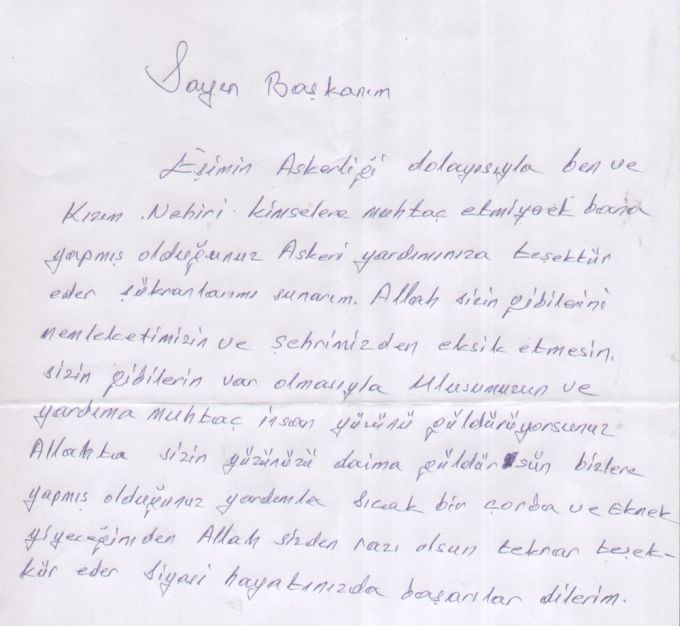 Sayın Başkanım
Eşimin Askerliği dolayısıyla ben ve
Kızım Nehiri kimselere muhtaç etmiyerek bana
yapmış olduğunuz Askeri yardımınıza teşekkür
eder şükranlarımı sunarım. Allah sizin gibilerini
memleketimizin ve şehrimizden eksik etmesin.
sizin gibilerin var olmasıyla Ulusumuzun ve
yardıma muhtaç insan yüzünü güldürüyorsunuz
Allahta sizin yüzünüzü daima güldürsün bizlere
yapmış olduğunuz yardımla sıcak bir çorba ve Ekmek
yiyeceğimden Allah sizden razı olsun tekrar teşek-
kür eder siyasi hayatınızda başarılar dilerim.